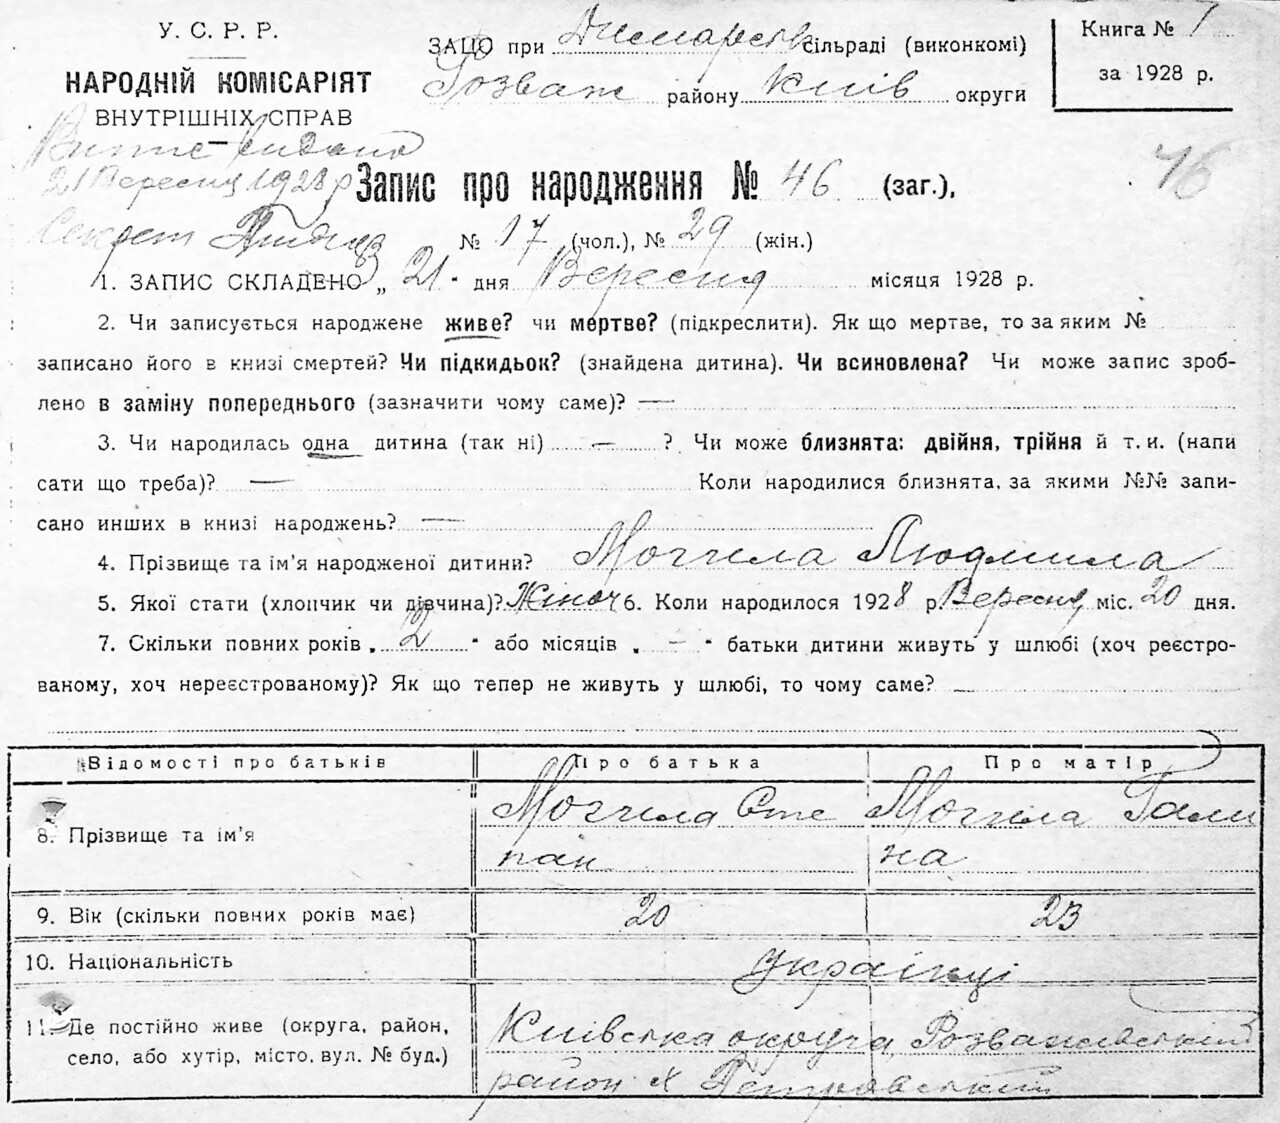 У. С. Р. Р.
НАРОДНІЙ КОМІСАРІЯТ
ВНУТРІШНІХ СПРАВ
ЗАЦС при сільраді (виконкомі)
Розваж району Київ округи
Книга № 1
за 1928 р.
Випис видано
21 Вересня 1928 р
Секрет
46
Запис про народження № 46 (заг.),
№ 17 (чол.), № 29 (жін.)
1. ЗАПИС СКЛАДЕНО „ 21 " дня Вересня місяця 1928 р.
2. Чи записується народжене живе? чи мертве? (підкреслити). Як що мертве, то за яким №
записано його в книзі смертей? Чи підкидьок? (знайдена дитина). Чи всиновлена? Чи може запис зроб-
лено в заміну попереднього (зазначити чому саме)? —
3. Чи народилась одна дитина (так ні) — ? Чи може близнята: двійня, трійня й т. и. (напи
сати що треба)? — Коли народилися близнята, за якими №№ запи-
сано инших в книзі народжень? —
4. Прізвище та ім'я народженої дитини? Могила Людмила
5. Якої стати (хлопчик чи дівчина)? Жіноч 6. Коли народилося 1928 р. Вересня міс. 20 дня.
7. Скільки повних років „ 2 " або місяців „ — " батьки дитини живуть у шлюбі (хоч реєстро-
ваному, хоч нереєстрованому)? Як що тепер не живуть у шлюбі, то чому саме? —
Відомості про батьків Про батька Про матір
8. Прізвище та ім'я Могила Сте Могила Гали
пан на
9. Вік (скільки повних років має) 20 23
10. Національність Українці
11. Де постійно живе (округа, район, Київська округа, Розважівський
село, або хутір, місто, вул. № буд.) район х Петровський